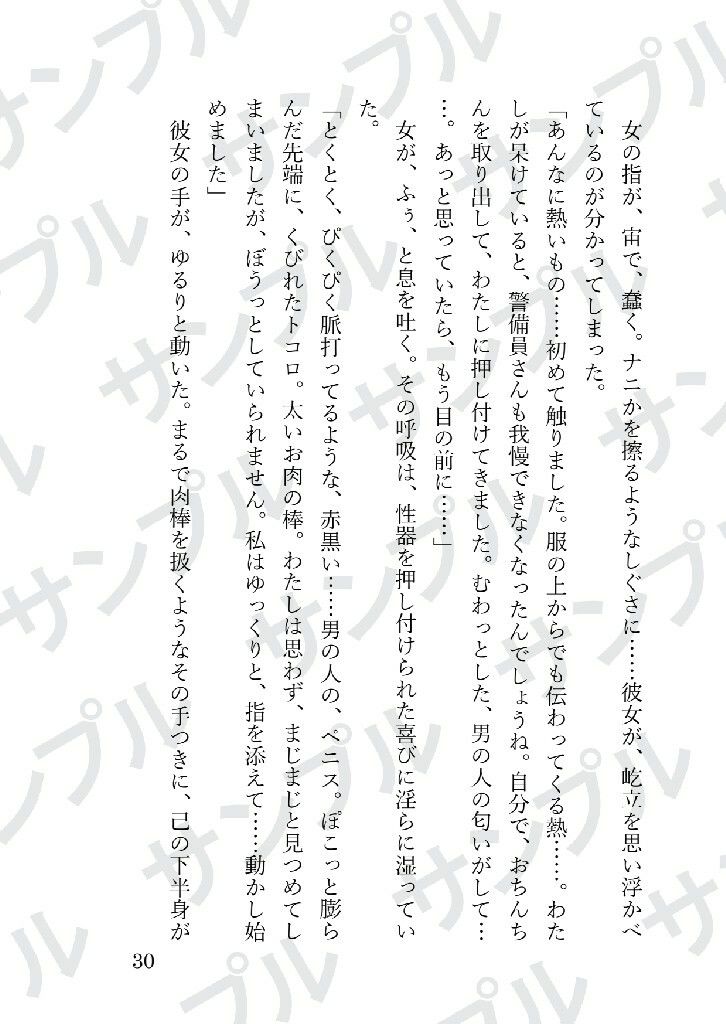 女の指が、宙で、蠢く。ナニかを擦るようなしぐさに……彼女が、屹立を思い浮かべ
ているのが分かってしまった。
「あんなに熱いもの……初めて触りました。服の上からでも伝わってくる熱……。わた
しが呆けていると、警備員さんも我慢できなくなったんでしょうね。自分で、おちんち
んを取り出して、わたしに押し付けてきました。むわっとした、男の人の匂いがして…
…。あっと思っていたら、もう目の前に……」
女が、ふぅ、と息を吐く。その呼吸は、性器を押し付けられた喜びに淫らに湿ってい
た。
「とくとく、ぴくぴく脈打ってるような、赤黒い……男の人の、ペニス。ぽこっと膨ら
んだ先端に、くびれたトコロ。太いお肉の棒。わたしは思わず、まじまじと見つめてし
まいましたが、ぼうっとしていられません。私はゆっくりと、指を添えて……動かし始
めました」
彼女の手が、ゆるりと動いた。まるで肉棒を扱くようなその手つきに、己の下半身が
30
サンプル
サンプル
サンプル
サンプル
サンプル
サンプル
サンプル
サンプル
サンプル
サンプル
サンプル
サンプル